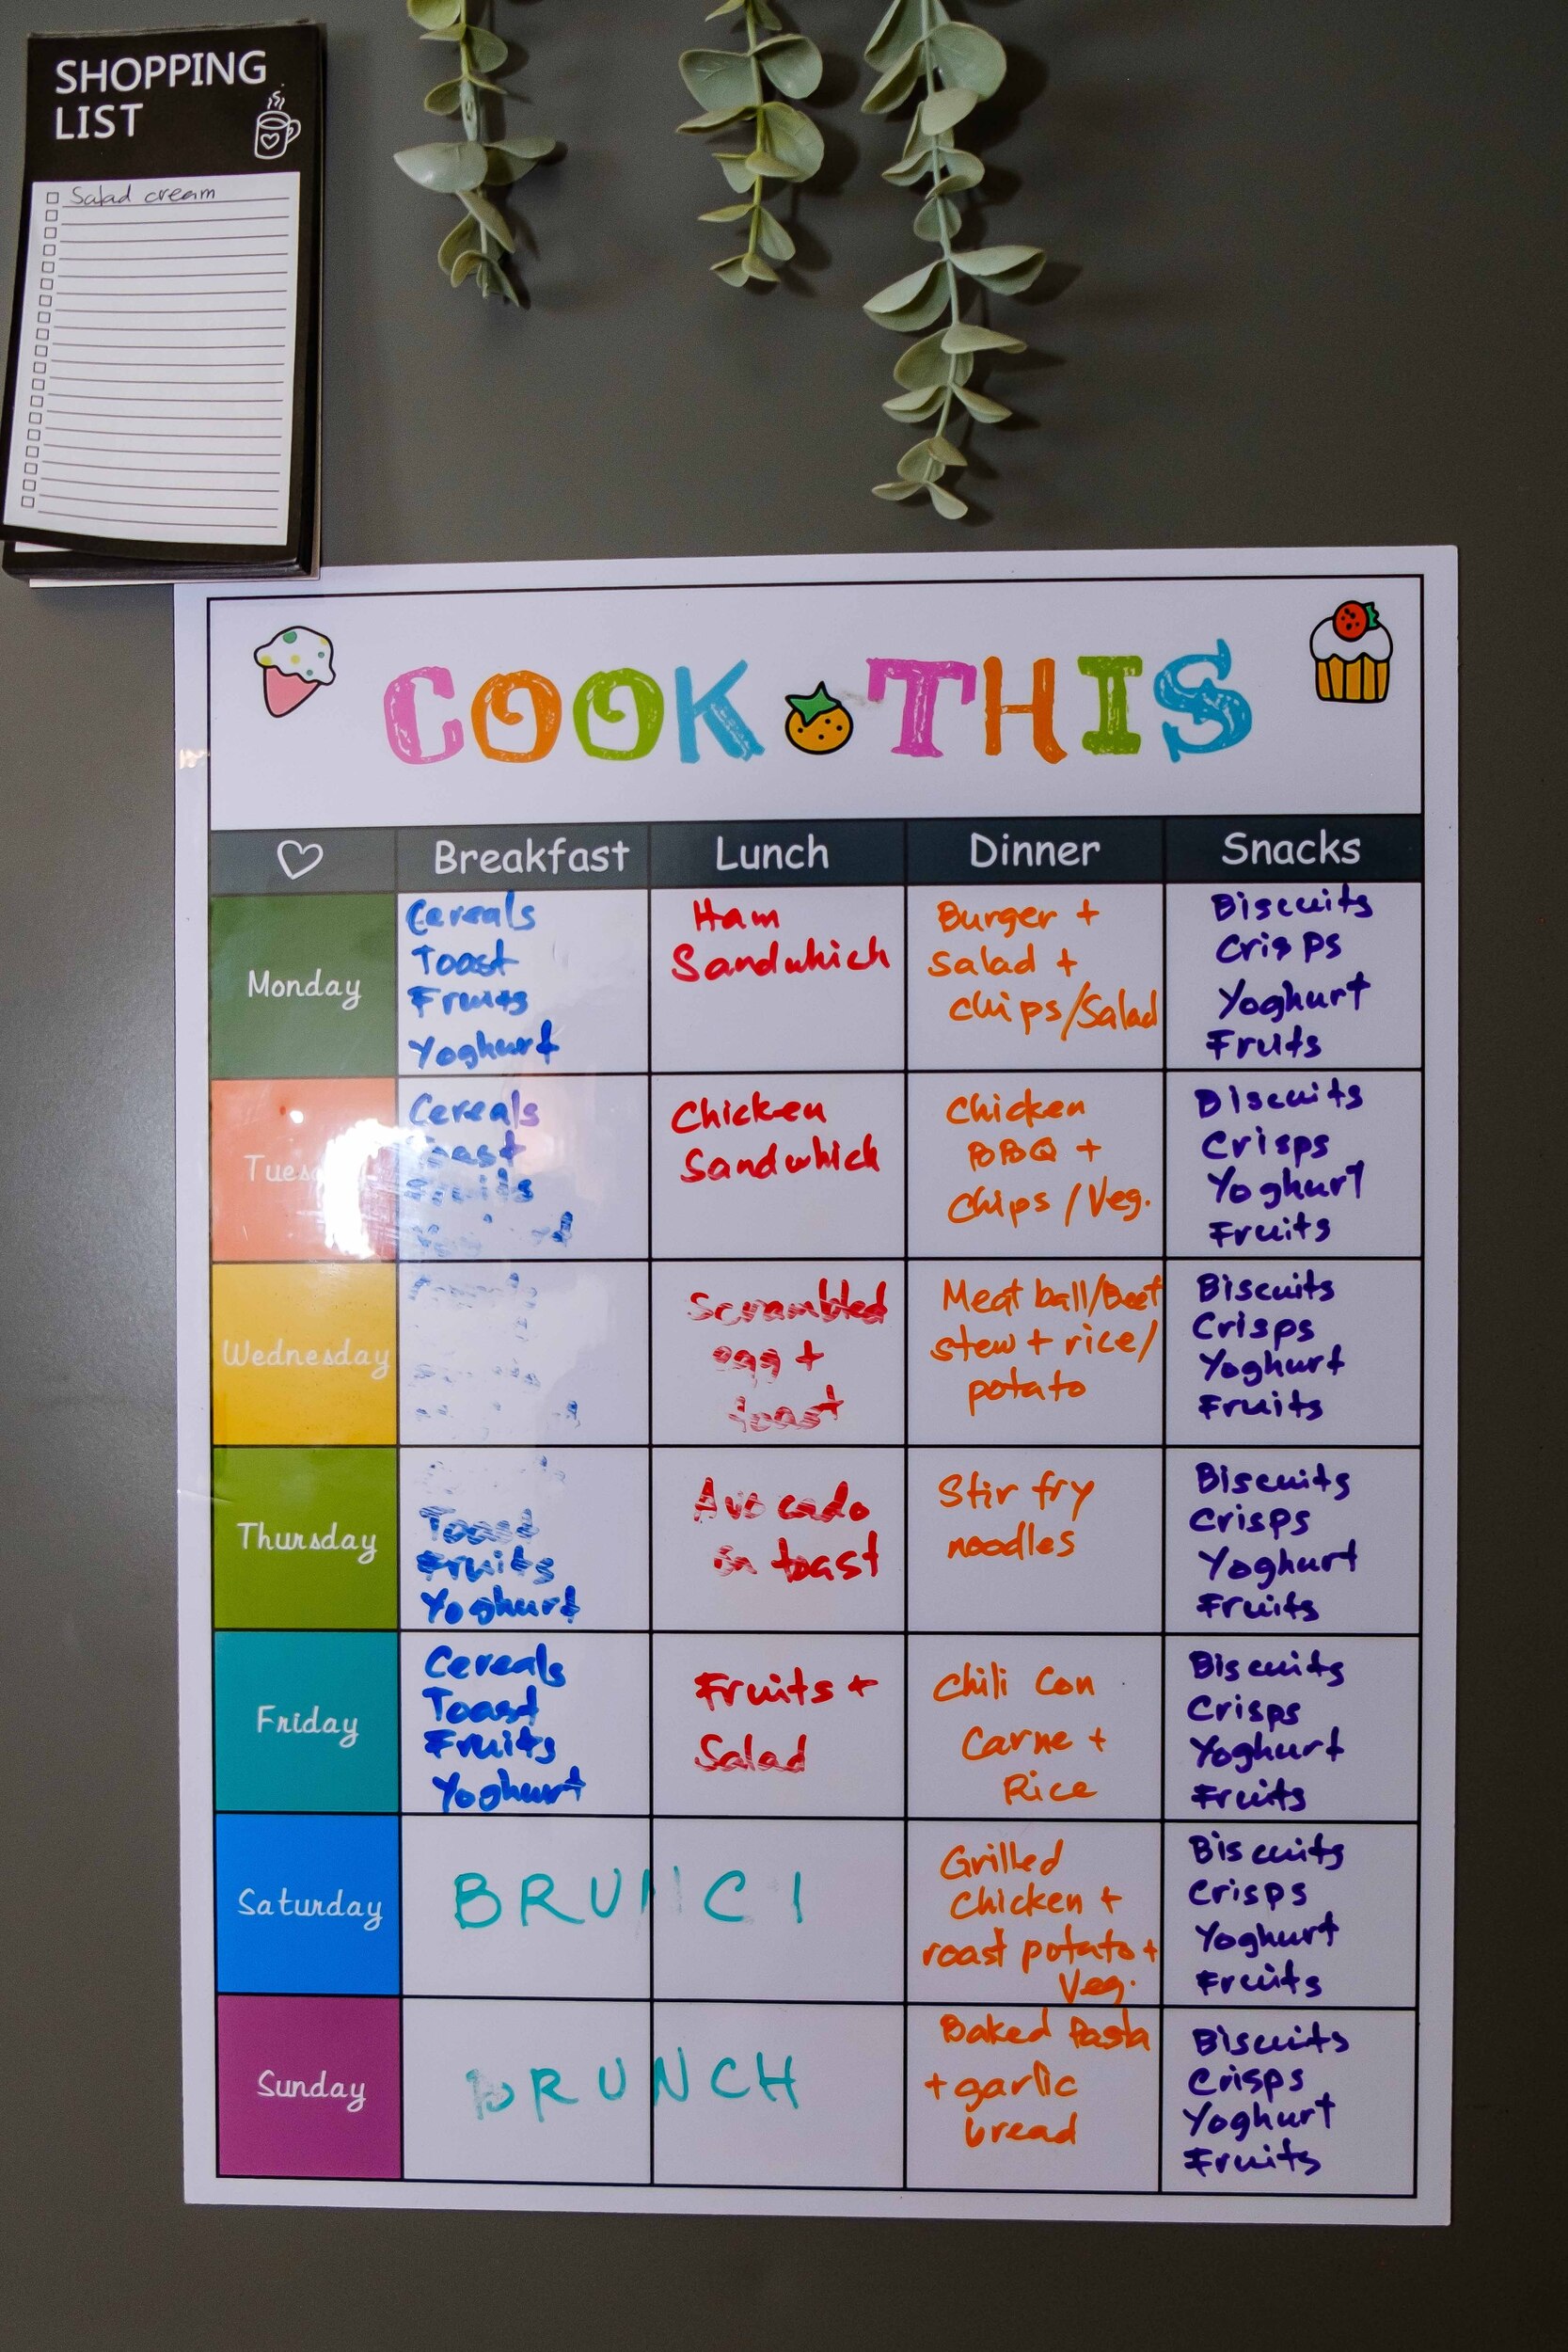 SHOPPING
LIST
Salad cream
COOK THIS
Breakfast Lunch Dinner Snacks
Monday
Cereals
Toast
Fruits
Yoghurt
Ham
Sandwhich
Burger +
Salad +
chips/Salad
Biscuits
Crisps
Yoghurt
Fruits
Tuesday
Cereals
Toast
Fruits
Chicken
Sandwhich
Chicken
BBQ +
chips / Veg.
Biscuits
Crisps
Yoghurt
Fruits
Wednesday
Scrambled
egg +
toast
Meat ball/Beef
stew + rice/
potato
Biscuits
Crisps
Yoghurt
Fruits
Thursday
Toast
Fruits
Yoghurt
Avocado
on toast
Stir fry
noodles
Biscuits
Crisps
Yoghurt
Fruits
Friday
Cereals
Toast
Fruits
Yoghurt
Fruits +
Salad
Chili Con
Carne +
Rice
Biscuits
Crisps
Yoghurt
Fruits
Saturday
BRUNCH
Grilled
Chicken +
roast potato +
Veg.
Biscuits
Crisps
Yoghurt
Fruits
Sunday
BRUNCH
Baked Pasta
+ garlic
bread
Biscuits
Crisps
Yoghurt
Fruits